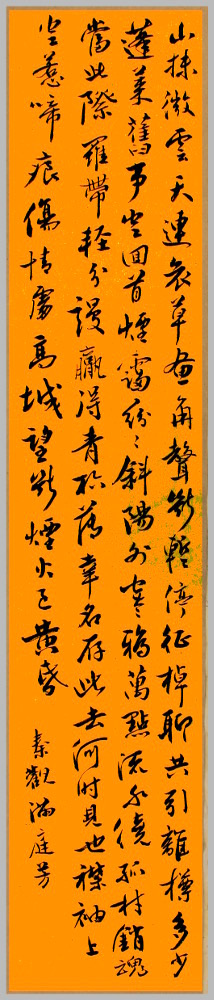 山抹微雲天連衰草畫角聲斷暫停征棹聊共引離樽多少
蓬萊舊事空回首煙靄紛〻斜陽外寒鴉萬點流水繞孤村銷魂
當此際羅帶輕分謾贏得青薄幸名存此去何時見也襟袖上
空惹啼痕傷情處高城望斷煙火已黃昏
秦觀滿庭芳